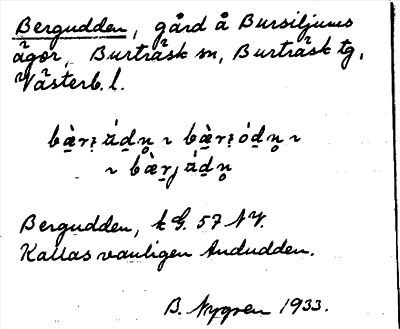 Bergudden, gård å Bursiljums
ägor, Burträsk sn, Burträsk tg,
Västerb. l.
bæ̀rị áḍn̥ ~ bæ̀rị óḍn̥ ~
~ bæ̀rj áḍn̥
Bergudden, k G. 57 NV.
Kallas vanligen Andudden.
B. Nygren 1933.